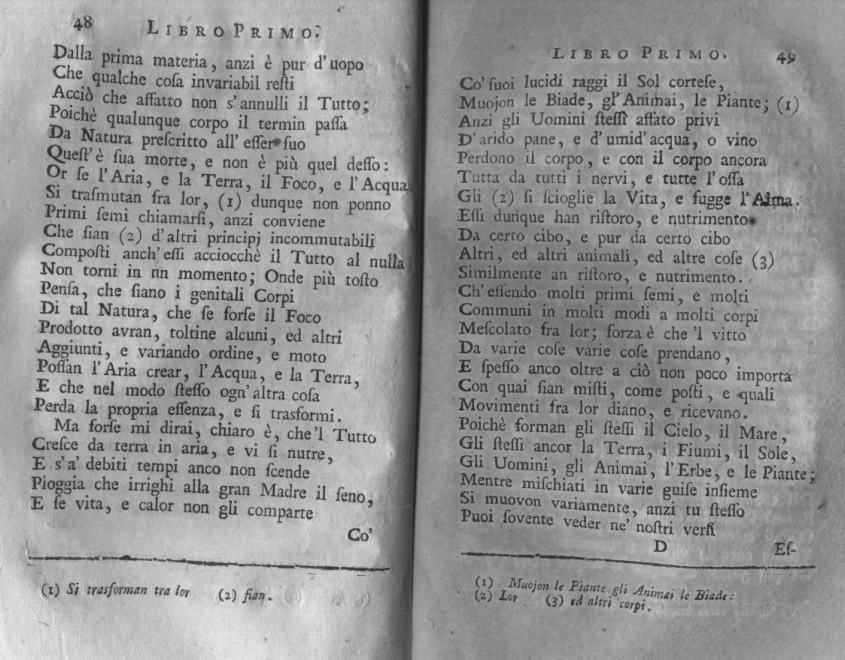 48 LIBRO PRIMO.
Dalla prima materia, anzi è pur d'uopo
Che qualche coſa invariabil reſti
Acciò che affatto non s'annulli il Tutto;
Poichè qualunque corpo il termin paſſa
Da Natura preſcritto all' eſſer ſuo
Queſt'è ſua morte, e non è più quel deſſo:
Or ſe l'Aria, e la Terra, il Foco, e l'Acqua
Si traſmutan fra lor, (1) dunque non ponno
Primi ſemi chiamarſi, anzi conviene
Che ſian (2) d'altri principj incommutabili
Compoſti anch'eſſi acciocchè il Tutto al nulla
Non torni in nn momento; Onde più toſto
Penſa, che ſiano i genitali Corpi
Di tal Natura, che ſe forſe il Foco
Prodotto avran, toltine alcuni, ed altri
Aggiunti, e variando ordine, e moto
Poſſan l'Aria crear, l'Acqua, e la Terra,
E che nel modo ſteſſo ogn'altra coſa
Perda la propria eſſenza, e ſi trasformi.
Ma forſe mi dirai, chiaro è, che'l Tutto
Creſce da terra in aria, e vi ſi nutre,
E s'a' debiti tempi anco non ſcende
Pioggia che irrighi alla gran Madre il ſeno,
E ſe vita, e calor non gli comparte
Co'
(1) Si trasforman tra lor (2) ſian.
LIBRO PRIMO. 49
Co' ſuoi lucidi raggi il Sol corteſe,
Muojon le Biade, gl'Animai, le Piante; (1)
Anzi gli Uomini ſteſſi affato privi
D'arido pane, e d'umid'acqua, o vino
Perdono il corpo, e con il corpo ancora
Tutta da tutti i nervi, e tutte l'oſſa
Gli (2) ſi ſcioglie la Vita, e fugge l'Alma.
Eſſi dunque han riſtoro, e nutrimento
Da certo cibo, e pur da certo cibo
Altri, ed altri animali, ed altre coſe (3)
Similmente an riſtoro, e nutrimento.
Ch'eſſendo molti primi ſemi, e molti
Communi in molti modi a molti corpi
Meſcolato fra lor; forza è che 'l vitto
Da varie coſe varie coſe prendano,
E ſpeſſo anco oltre a ciò non poco importa
Con quai ſian miſti, come poſti, e quali
Movimenti fra lor diano, e ricevano.
Poichè forman gli ſteſſi il Cielo, il Mare,
Gli ſteſſi ancor la Terra, i Fiumi, il Sole,
Gli Uomini, gli Animai, l'Erbe, e le Piante;
Mentre miſchiati in varie guiſe inſieme
Si muovon variamente, anzi tu ſteſſo
Puoi ſovente veder ne' noſtri verſi
D Eſ-
(1) Muojon le Piante gli Animai le Biade:
(2) Lor (3) ed altri corpi.